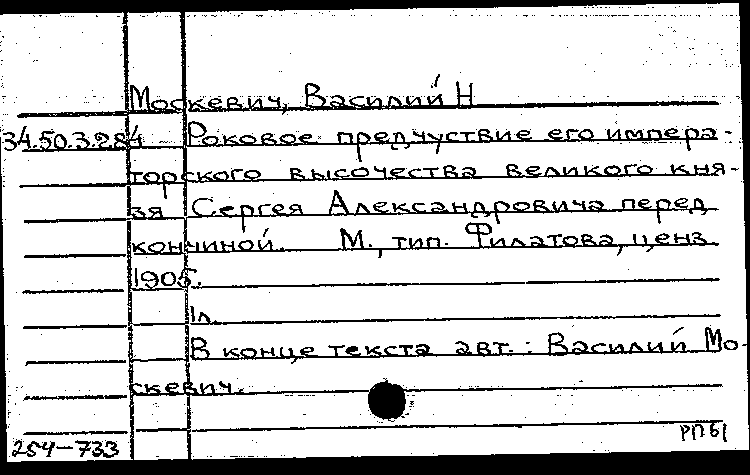 Москевич, Василий Н
34.50.3.284 Роковое предчуствие его импера-
торского высочества великого кня-
зя Сергея Александровича перед
кончиной. М., тип. Филатова, ценз.
1905.
1л.
В конце текста авт.: Василий Мо-
скевич.
254-733 РПБ1